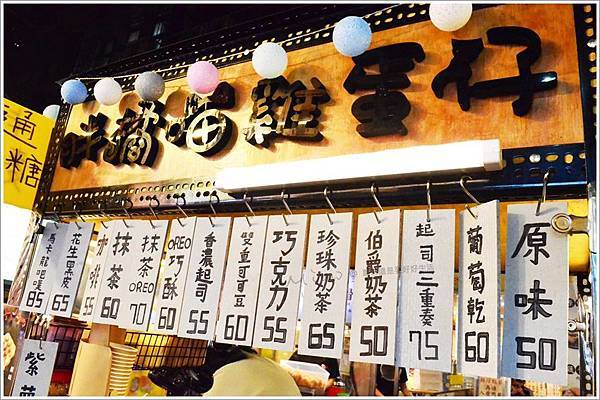 胖貓喵雞蛋仔
桶
糖
原味
50
葡萄乾
60
起司二重奏
75
伯爵奶茶
50
珍珠奶茶
65
巧克力
55
雙重可可豆
60
香濃起司
55
OREO
巧酥
60
抹茶
OREO
70
抹茶
60
咖啡
55
花生黑皮
65
馬卡龍吧噗
85
紫